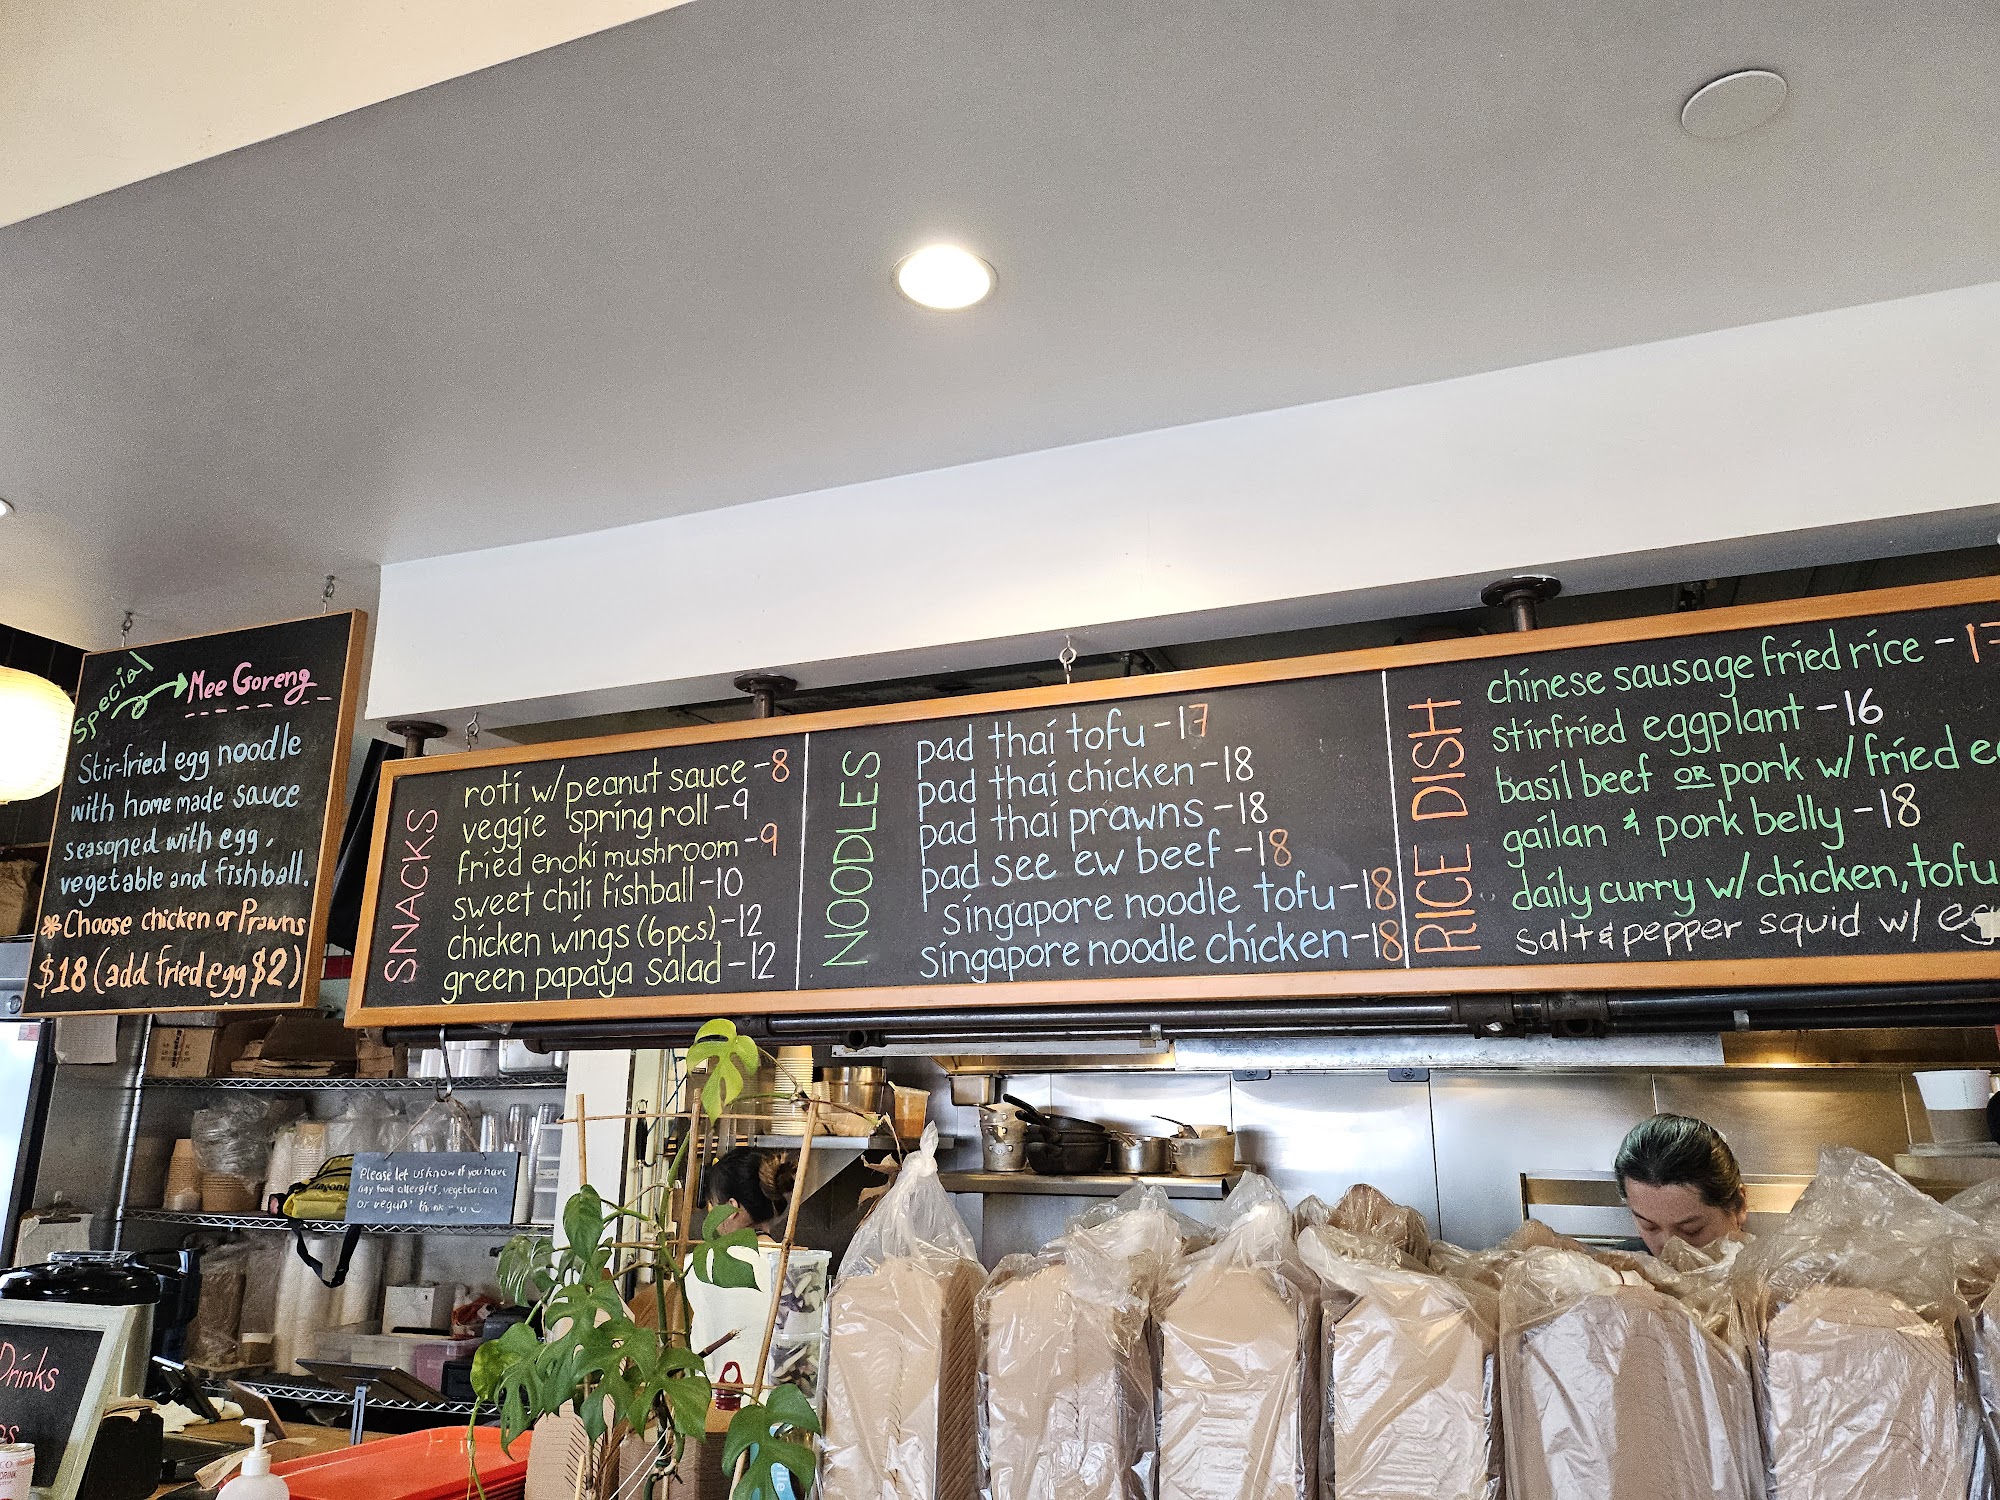 Special
Mee Goreng
Stir-fried egg noodle
with home made sauce
seasoned with egg,
vegetable and fishball.
Choose chicken or Prawns
$18 (add fried egg $2)
SNACKS
roti w/ peanut sauce - 8
veggie spring roll - 9
fried enoki mushroom - 9
sweet chili fishball - 10
chicken wings (6pcs) - 12
green papaya salad - 12
NOODLES
pad thai tofu - 17
pad thai chicken - 18
pad thai prawns - 18
pad see ew beef - 18
singapore noodle tofu - 18
singapore noodle chicken - 18
RICE DISH
chinese sausage fried rice - 17
stirfried eggplant - 16
basil beef OR pork w/ fried
gailan & pork belly - 18
daily curry w/ chicken, tofu
salt & pepper squid w/
Please let us know if you have
any food allergies, vegetarian
or vegan!
Drinks